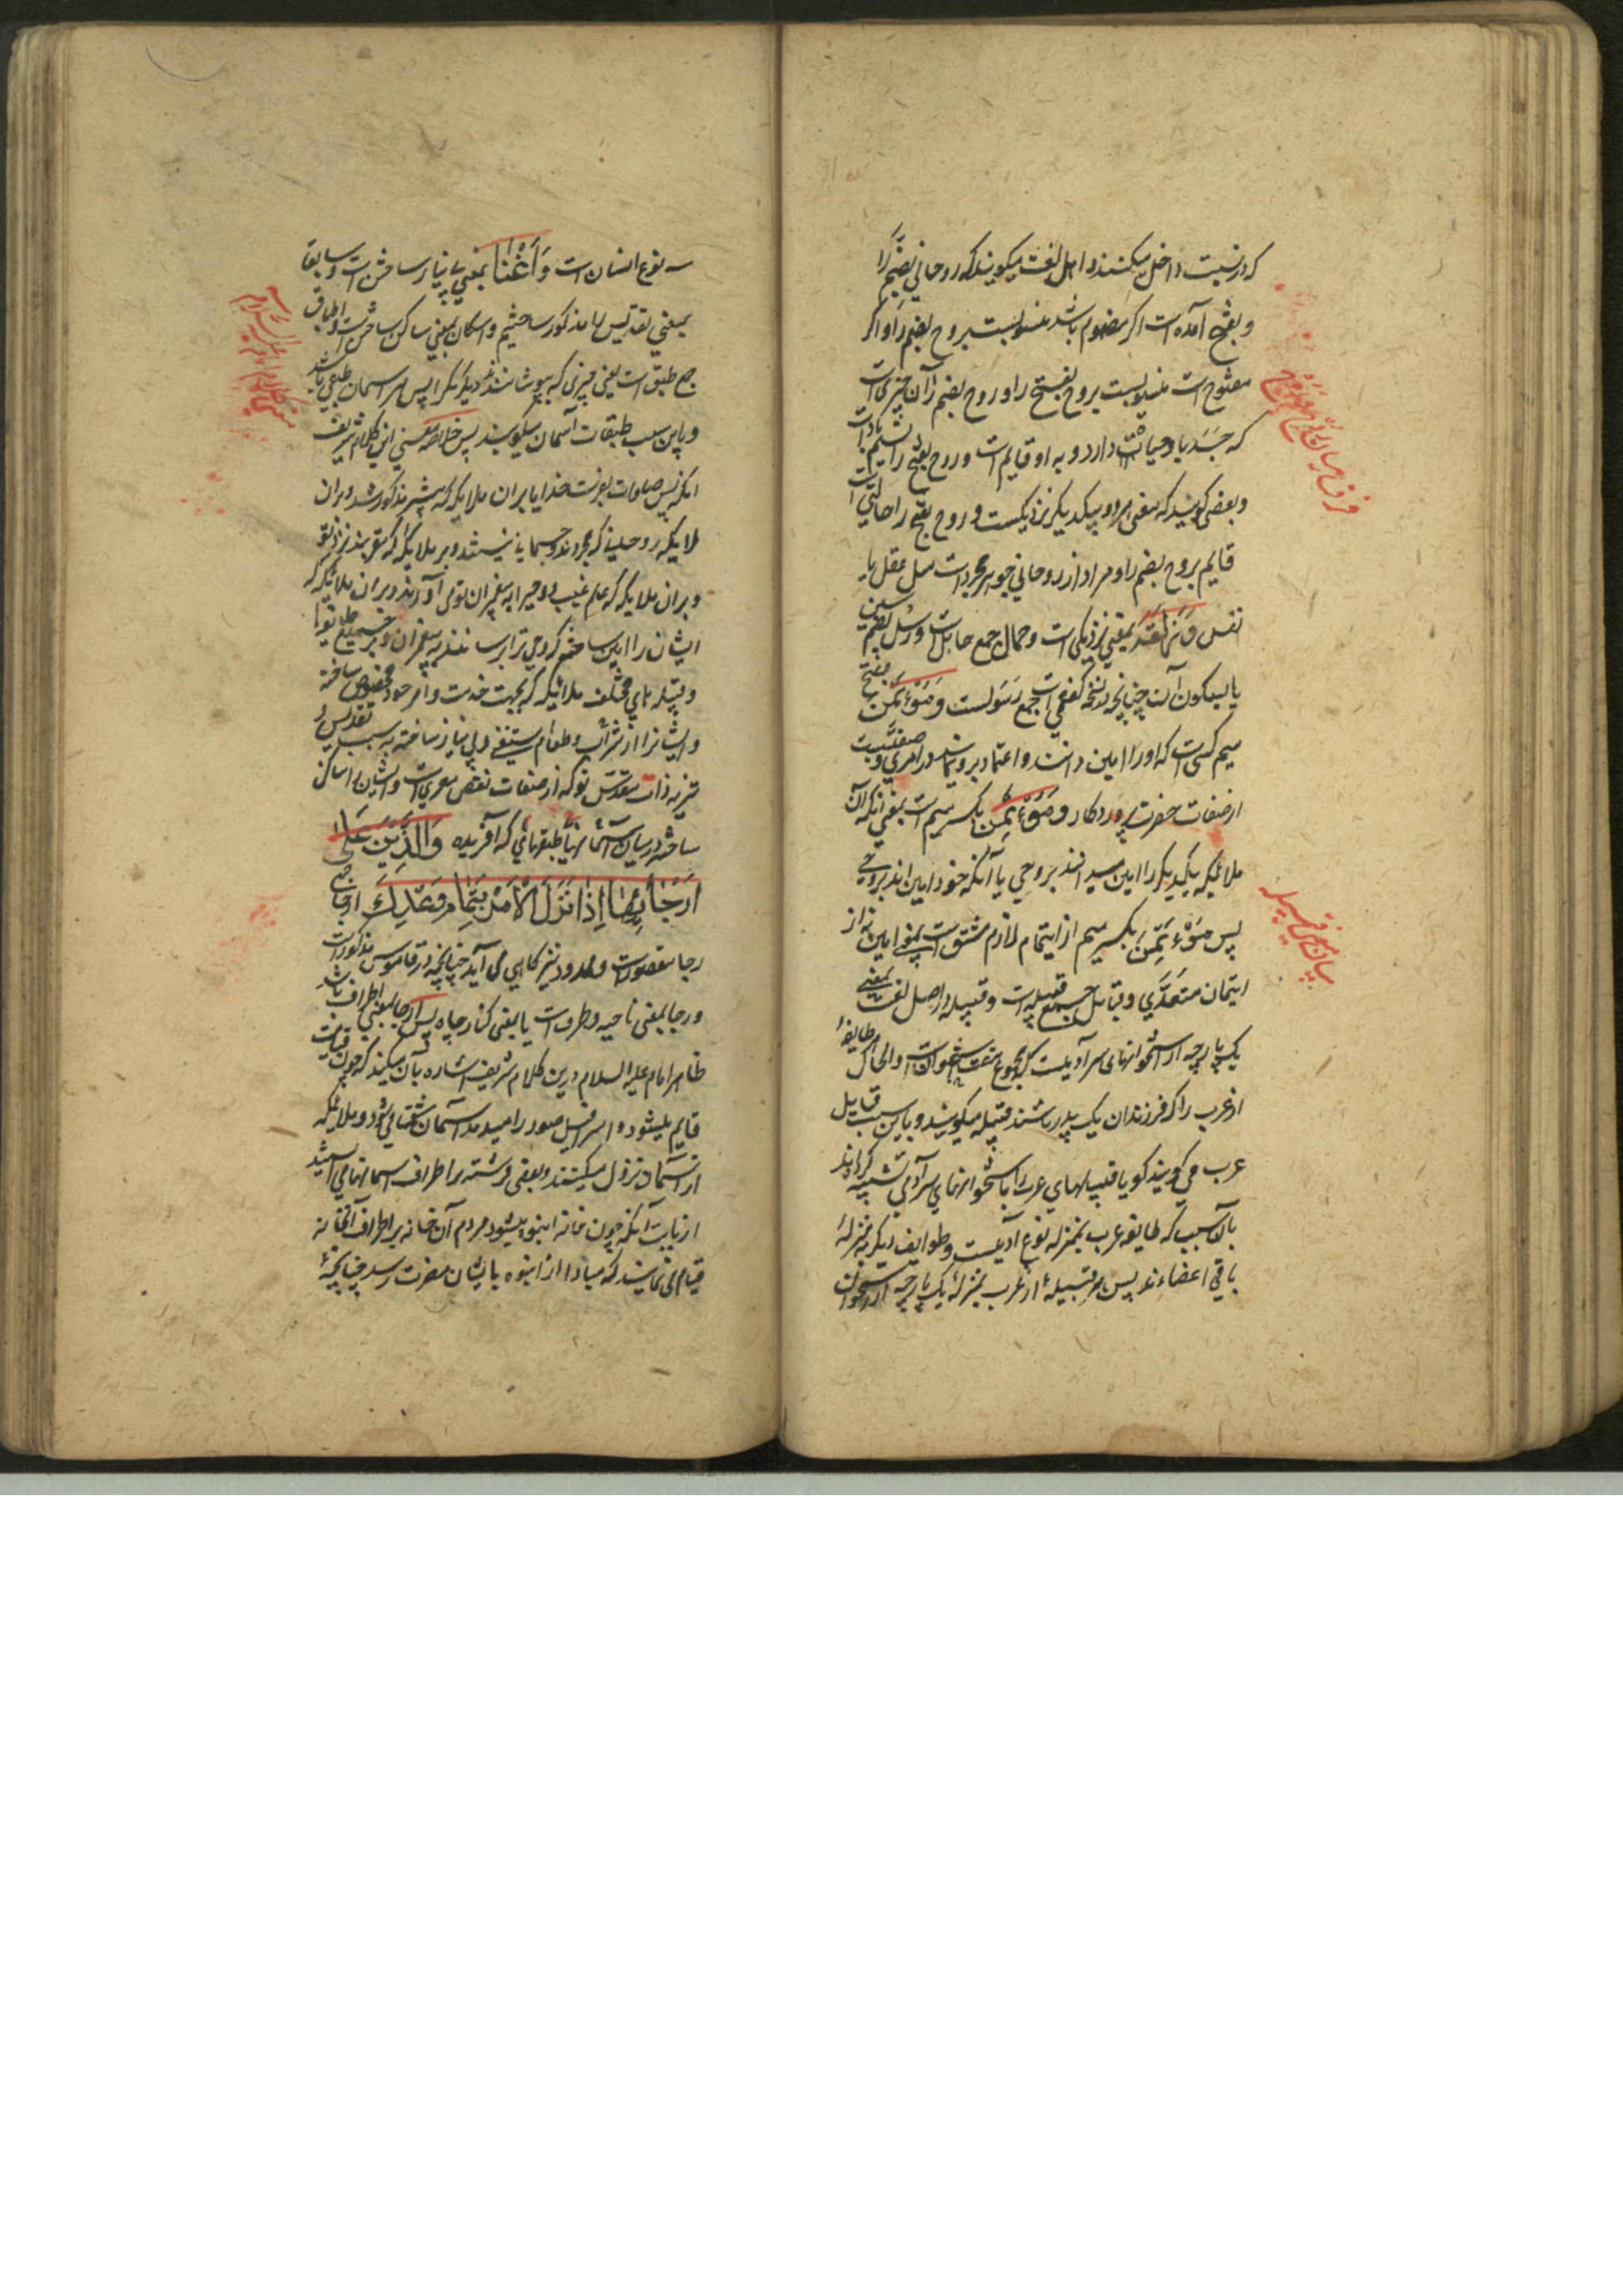 که در نسبت داخل میکنند و اهل لغت میگویند که روحانی بضم را
و بفتح آمده است اگر مضموم باشد منسوبست بروح بضم را و اگر
مفتوح است منسوبست بروح بفتح را و روح بضم را آن چیزی است
که جسد باو حیات دارد و به او قایم است و روح بفتح را نسیم باد است
و بعضی گویند که معنی هر دو بیکدیگر نزدیکست و روح بفتح را حالتی است
قایم بروح بضم را و مراد از روحانی جوهر مجرد است مثل عقل یا
نفس و بمعنی نزدیکی است و حمال جمع حامل است و رسل بضم سین
یا بسکون آن چنانچه در نسخه کفعمی است جمع رسولست و مؤتمن بفتح
میم کسی است که او را امین دانند و اعتماد برو نمایند در امری و صفتیست
از صفات حضرت پروردگار و مؤتمن بکسر میم است بمعنی آنکه آن
ملائکه یکدیگر را امین میدانند بر وحی یا آنکه خود امین اند بر وحی
پس مؤتمن بکسر میم از ایتمام لازم مشتق است بمعنی امین نه از
ایتمان متعدی و قبایل جمع قبیله است و قبیله در اصل لغت بمعنی
یک پارچه از استخوانهای سر آدمیست که مجموع هفت استخوان است و الحال هر طایفۀ
از عرب را که فرزندان یک پدر باشند قبیله میگویند و باین سبب قبایل
عرب می گویند گویا قبیلهای عرب را باستخوانهای سر آدمی تشبیه کرده‌اند
بآن سبب که طایفه عرب بمنزله نوع آدمیست و طوایف دیگر بمنزلۀ
باقی اعضاءند پس هر قبیلۀ از عرب بمنزلۀ یک پارچه از استخوان
فرق میان
بیان معنی قبیله
سر نوع انسان است و أغنا بمعنی بی نیاز ساختن است و سابقا
بمعنی تقدیس را مذکور ساختیم و اسکان بمعنی ساکن ساختن است و اطباق
جمع طبق است یعنی چیزی که بپوشانند دیگری را پس هر آسمان طبقی باشد
و باین سبب طبقات آسمان میگویند پس خلاصه معنی این کلام شریف
آنکه پس صلوات بفرست خدایا بران ملایکه که پیشتر مذکور شد و بران
ملایکه روحانی که مجردند و جسمانی نیستند و بر ملایکه که مقربند نزد تو
و بران ملایکه که علم غیب و وحی را به پیغمبران تو می آورند و بران ملائکه که
ایشان را امین ساختۀ که وحی ترا برسانند به پیغمبران و بر جمیع طایفها
و قبیله‌های مختلف ملائکه که بجهت خدمت و امر خود مخصوص ساختۀ
و ایشانرا از شراب و طعام مستغنی و بی نیاز ساختۀ به سبب تقدیس و
تنزیه ذات مقدس تو که از صفات نقص معریست و ایشان را ساکن
ساختۀ درمیان آسمانها طبقهائی که آفریده وَالَّذِينَ عَلَى
أَرْجَائِهَا إِذَا نَزَلَ الْأَمْرُ بِتَمَامِ وَعْدِكَ ارجا جمع
رجا مقصور است و ممدود نیز گاهی می آید چنانچه در قاموس مذکور است
و رجا بمعنی ناحیه و طرف است یا بمعنی کنار چاه پس ارجا بمعنی اطراف باشد
ظاهرا امام علیه السلام درین کلام شریف اشاره بآن میکند که چون قیامت
قایم میشود و اسرافیل صور را میدمد آسمان شق میشود و ملائکه
از آسمان نزول میکنند و بعضی فرشته بر اطراف آسمانها می ایستند
از بابت آنکه چون خانه انبوه میشود مردم آن خانه بر اطراف آنخانه
قیام می نمایند که مبادا از انبوه بایشان مضرت رسد چنانچه